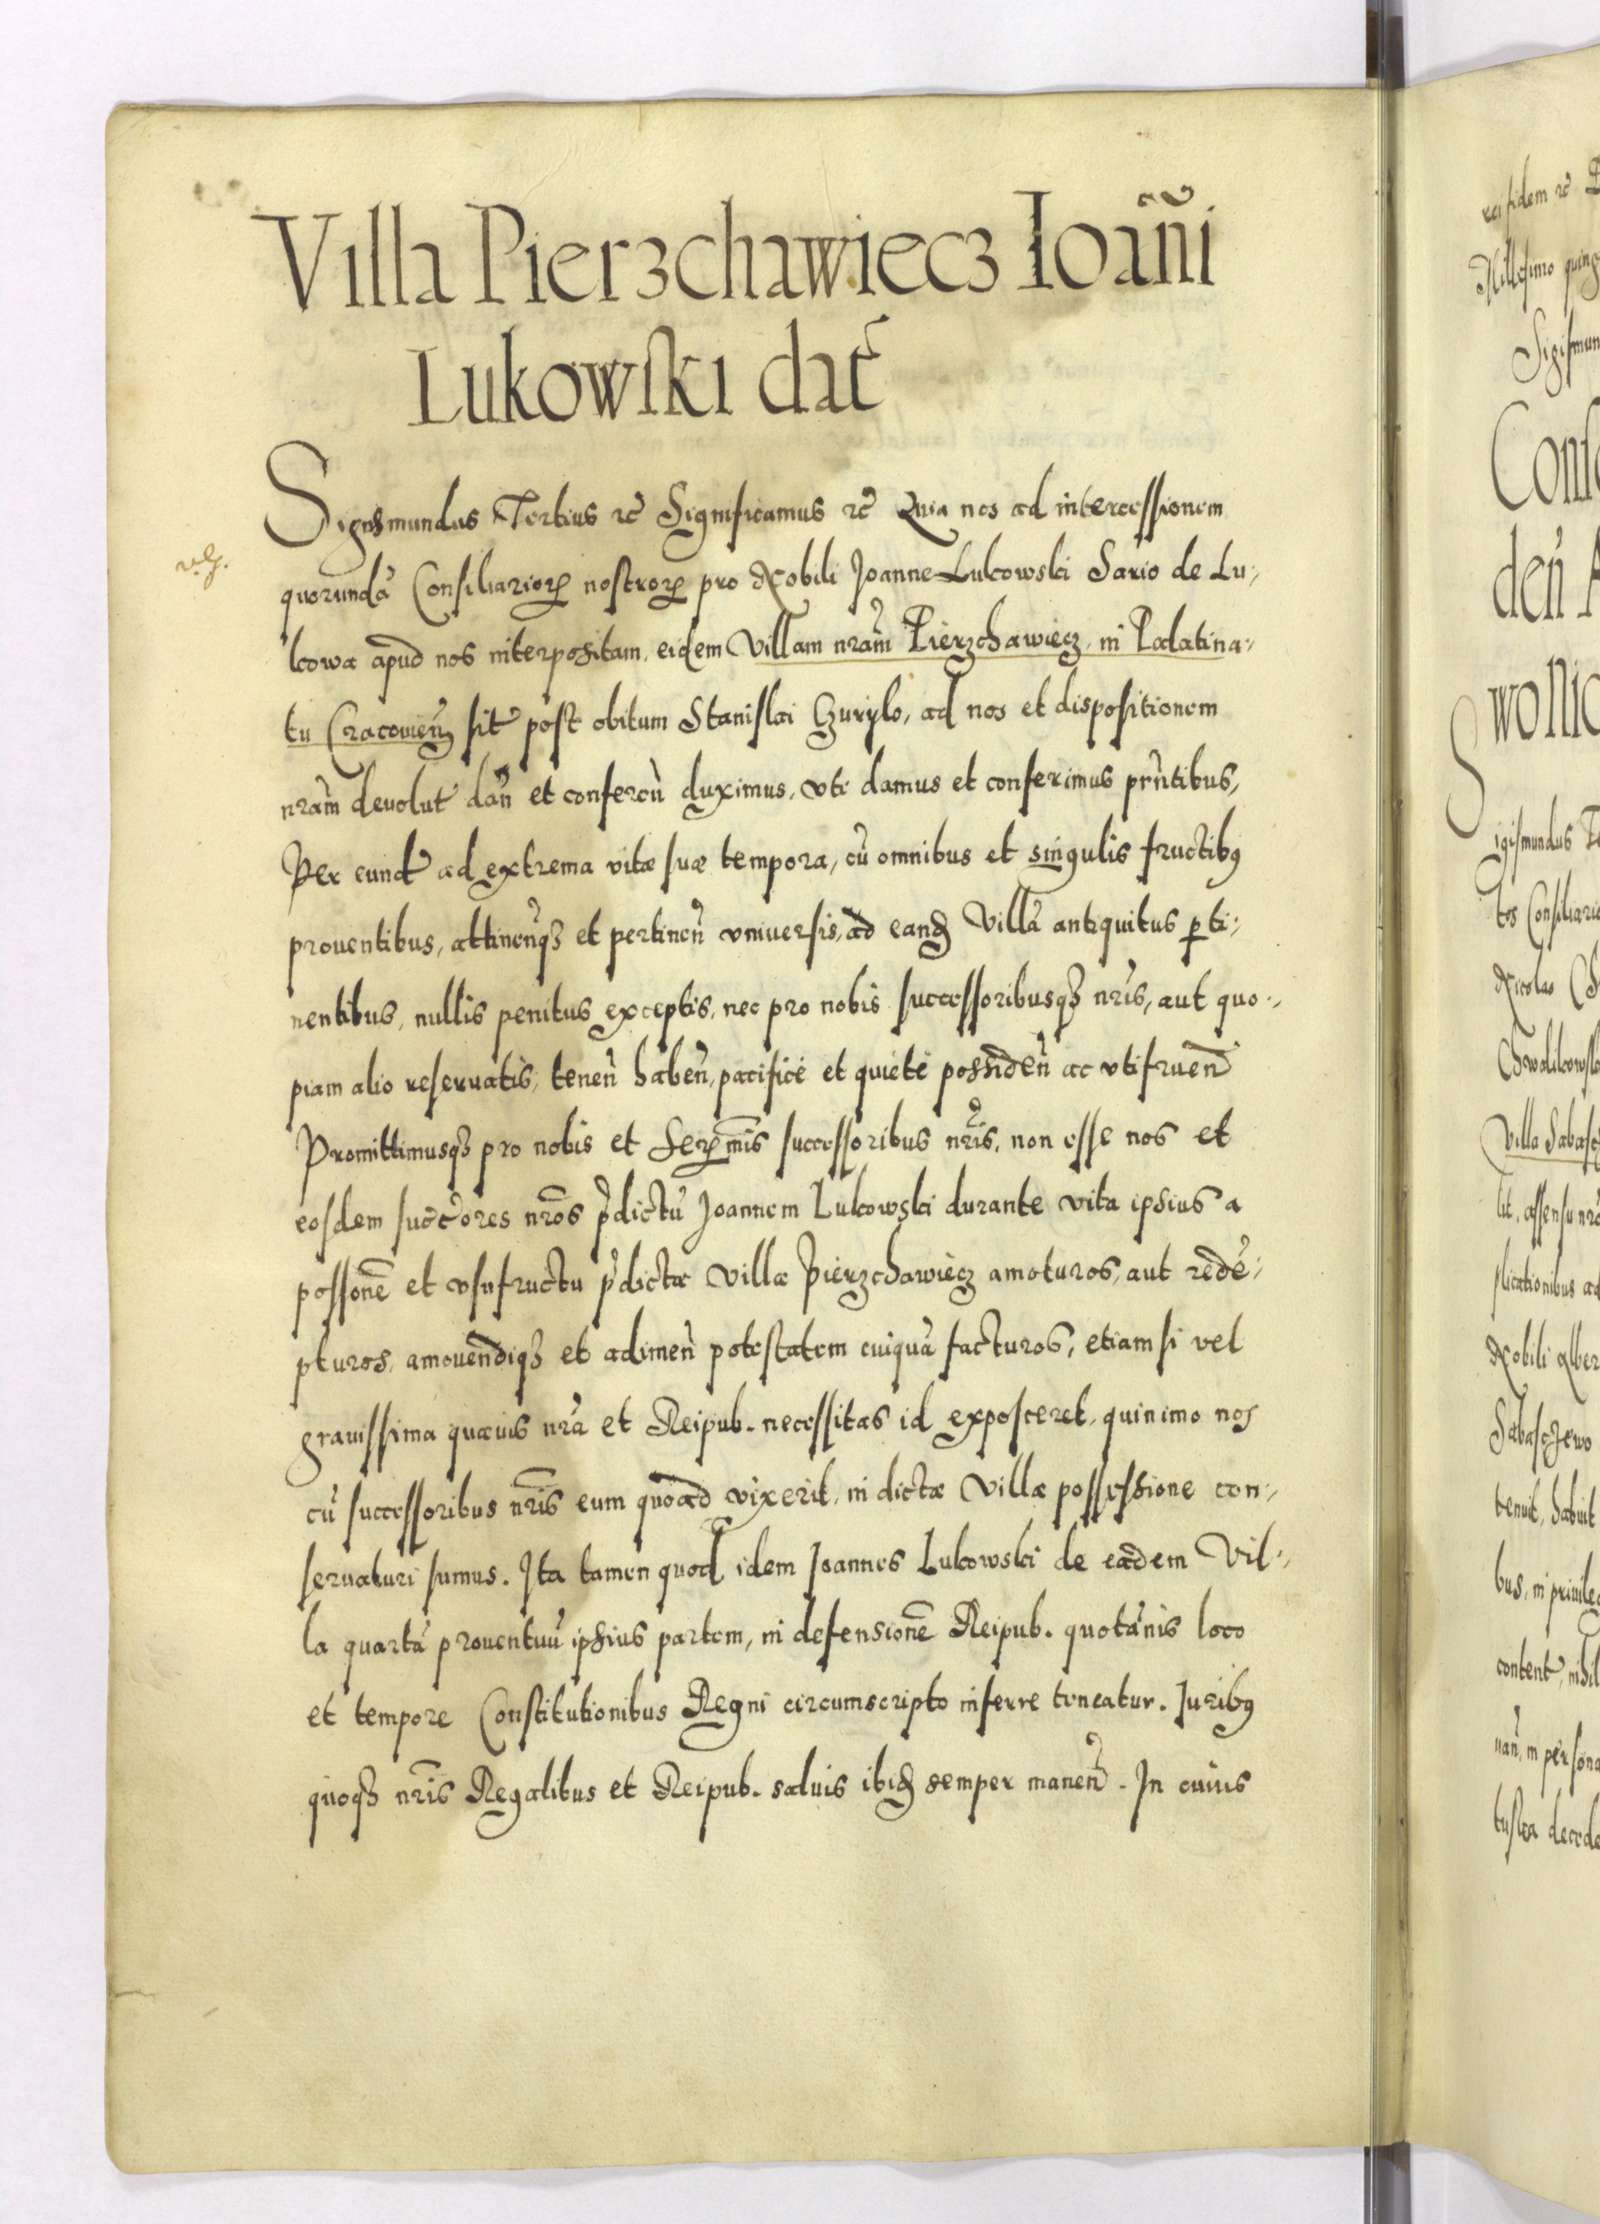 Villa Pierzchawiecz Ioañi
Lukowſki dat̃
Sigismundus Tertius ꝛc̃ Significamus ꝛc̃ Quia nos ad intercessionem
quorundã Consiliarioꝝ nostroꝝ pro Nobili Joanne Lukowski Sãrio de Lu-
kowa apud nos interpositam, eidem Villam nram̃ Pierzchawiecz, in Palatina-
tu Cracouieñ sit̃ post obitum Stanislai Gurylo, ad nos et dispositionem
nram̃ deuolut̃ dañ et confereñ duximus, vti damus et conferimus prñtibus,
Per eund̃ ad extrema vitæ suæ tempora, cũ omnibus et singulis fructibꝰ
prouentibus, attineñqꝫ et pertineñ vniuersis, ad eand̃ Villã antiquitus ꝑti-
nentibus, nullis penitus exceptis, nec pro nobis successoribusqꝫ nris̃, aut quo-
piam alio reseruatis, teneñ habeñ, pacifice et quiete possideñ ac vtifrueñd
Promittimusqꝫ pro nobis et Sereꝝmis̃ successoribus nr̃is, non esse nos et
eosdem succ̃ores nros̃ p̃dictũ Joannem Lukowski durante vita ipsius a
possonẽ et vsufructu p̃dictæ Villæ Pierzchawiecz amoturos, aut redẽ-
pturos, amouendiqꝫ et adimeñ potestatem cuiquã facturos, etiamsi vel
grauissima quæuis nrã et Reipub. necessitas id exposceret, quinimo nos
cũ successoribus nris̃ eum quoad vixerit, in dictæ Villæ possessione con-
seruaturi sumus. Ita tamen quod idem Joannes Lukowski de eadem Vil-
la quartã prouentuũ ipsius partem, in defensionẽ Reipub. quotãnis loco
et tempore Constitutionibus Regni circumscripto inferre teneatur. Juribꝰ
quoqꝫ nris̃ Regalibus et Reipub. saluis ibid̃ semper maneñ. In cuius